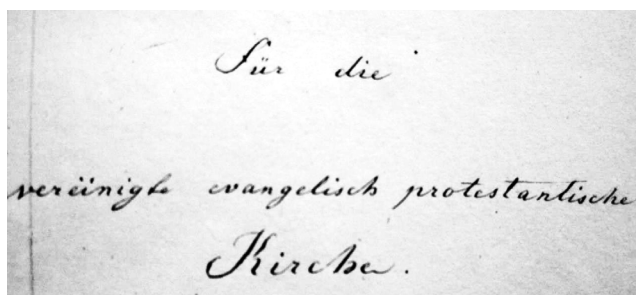 Für die
vereinigte evangelisch protestantische
Kirche.